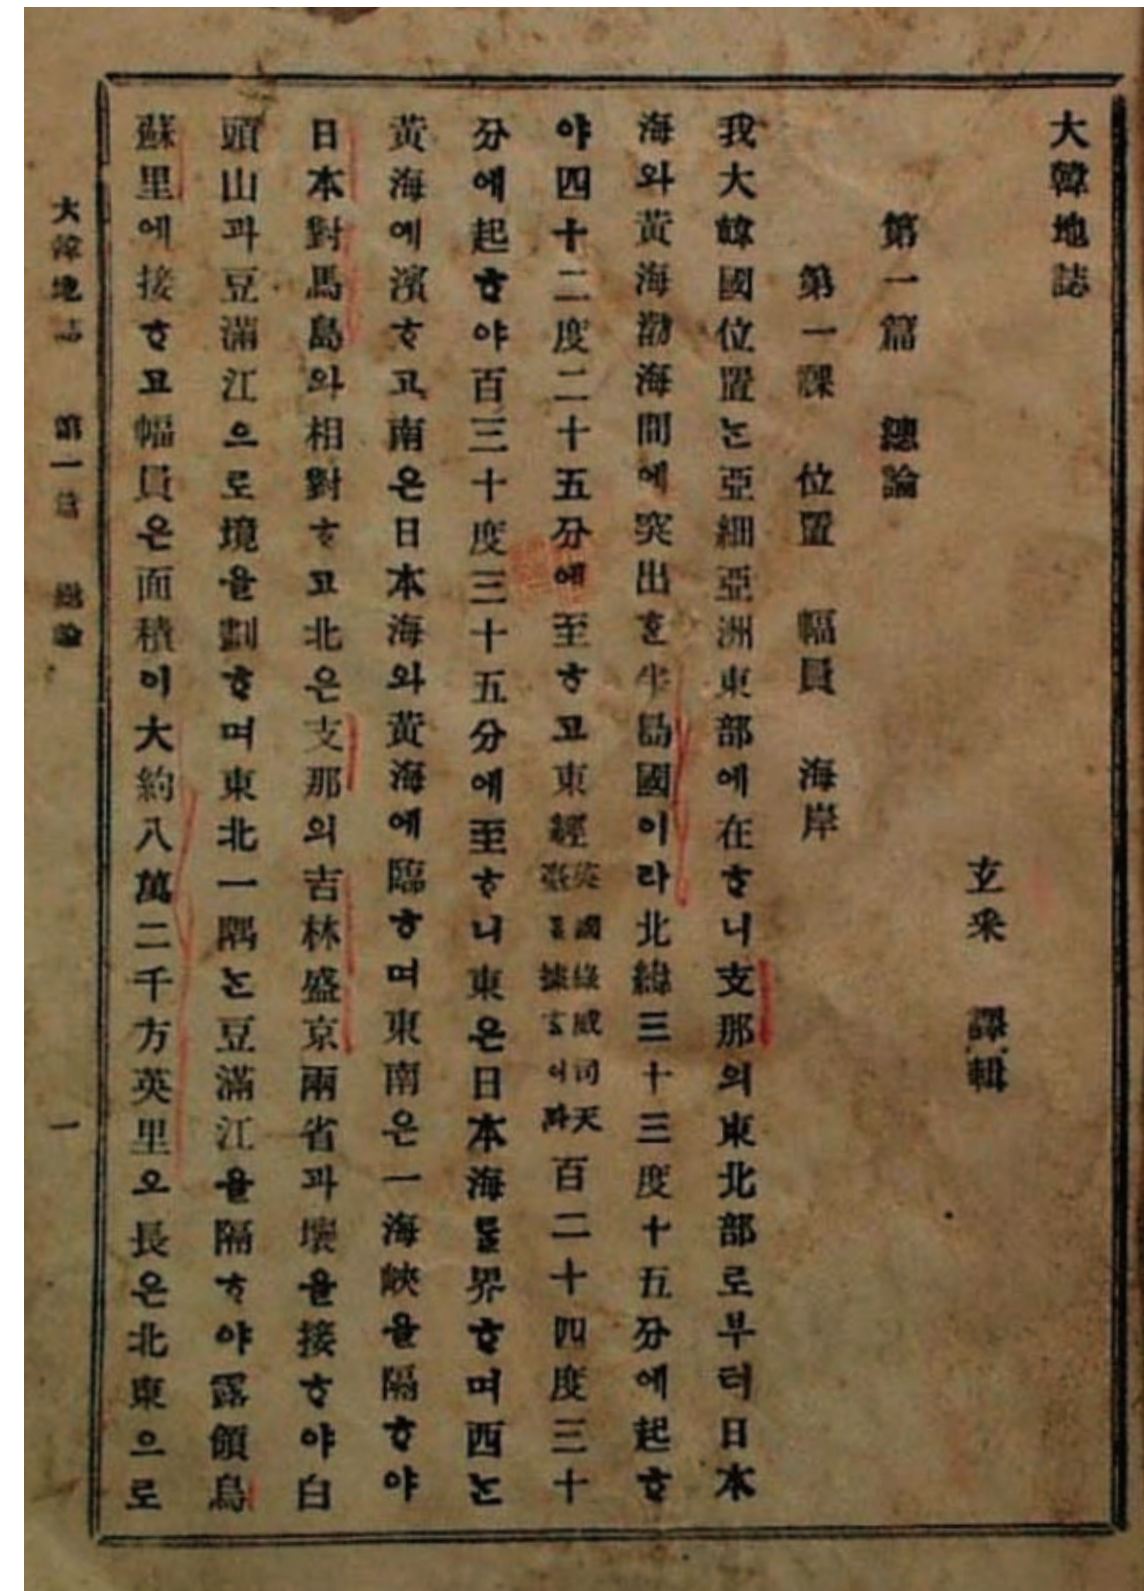 大韓地誌
玄采 譯輯
第一篇 總論
第一課 位置 幅員 海岸
我大韓國位置ᄂᆞᆫ亞細亞洲東部에在ᄒᆞ니支那의東北部로부터日本
海와黃海渤海間에突出ᄒᆞᆫ半島國이라北緯三十三度十五分에起ᄒᆞ
야四十二度二十五分에至ᄒᆞ고東經英國綠威司天臺를據ᄒᆞᆷ이라百二十四度三十
分에起ᄒᆞ야百三十度三十五分에至ᄒᆞ니東은日本海를界ᄒᆞ며西ᄂᆞᆫ
黃海에濱ᄒᆞ고南은日本海와黃海에臨ᄒᆞ며東南은一海峽을隔ᄒᆞ야
日本對馬島와相對ᄒᆞ고北은支那의吉林盛京兩省과壤을接ᄒᆞ야白
頭山과豆滿江으로境을劃ᄒᆞ며東北一隅ᄂᆞᆫ豆滿江을隔ᄒᆞ야露領烏
蘇里에接ᄒᆞ고幅員은面積이大約八萬二千方英里오長은北東으로
大韓地誌 第一篇 總論 一